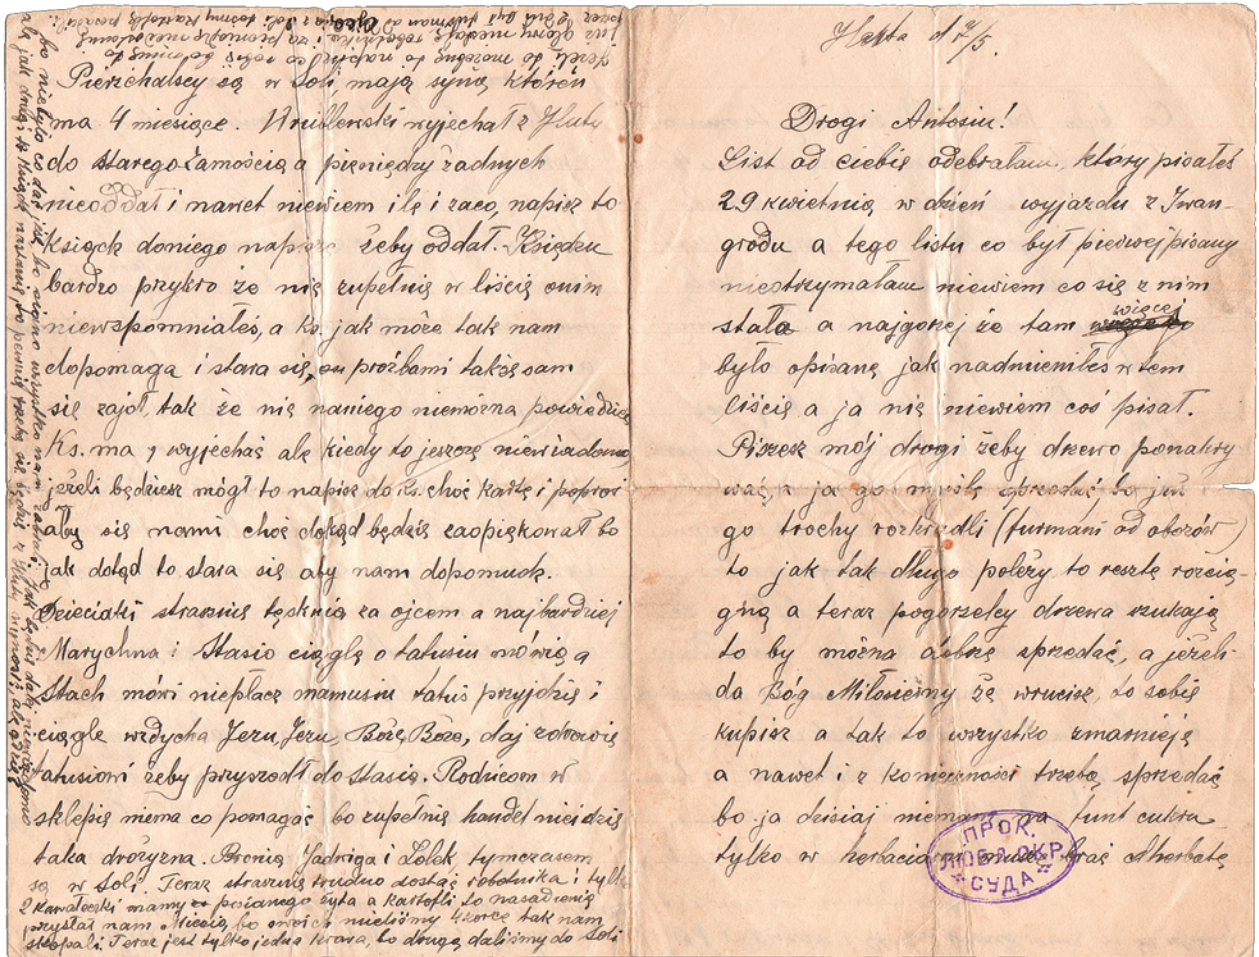 Huta d 7/5.
Drogi Antosiu!
List od ciebie odebrałam, który pisałeś
29 kwietnia w dzień wyjazdu z Iwan-
grodu a tego listu co był pierwej pisany
nieotrzymałam niewiem co się z nim
stała a najgorzej że tam więcej
było opisane jak nadmieniłeś w tem
liście a ja nie niewiem coś pisał.
Piszesz mój drogi żeby drzewo ponakry
wać, a ja go myślę sprzedać, bo już
go trochy rozkradli (furmani od obozów)
to jak tak długo poleży to resztę rozcią-
gną a teraz pogorzelcy drzewa szukają
to by można dobrze sprzedać, a jeżeli
da Bóg Miłosierny że wrucisz, to sobie
kupisz a tak to wszystko zmarnieje
a nawet i z konieczności trzeba sprzedać
bo ja dzisiaj niemam za funt cukru
tylko w herbaciarni muszę brać herbatę
ПРОК.
ЛЮБЛ. ОКР.
СУДА
Pierzchalscy są w Soli, mają syna któren
ma 4 miesiące. Wrublewski wyjechał z Huty
do starego Zamościa a pieniędzy żadnych
nieoddał i nawet niewiem ile i zaco, napisz to
ksiądz doniego napisze żeby oddał. Księdzu
bardzo przykro że nie zupełnie w liście onim
niewspomniałeś, a ks. jak może tak nam
dopomaga i stara się, on prożbami także sam
się zajoł, tak że nie naniego niemożna powiedzieć
Ks. ma wyjechać ale kiedy to jeszcze niewiadomo,
jeżeli będziesz mógł to napisz do ks. choć kartę i poproś
aby się nami choć dokąd będzie zaopiekował bo
jak dotąd to stara się aby nam dopomudz.
Dzieciaki strasznie tęsknią za ojcem a najbardziej
Marychna i Stasio ciągle o tatusiu mówią a
Stach mówi niepłacz mamusiu tatuś przyjdzie i
ciągle wzdycha Jezu, Jezu, Boże, Boże, daj zdrowie
tatusiowi żeby przyszedł do Stasia. Rodzicom w
sklepie niema co pomagać bo zupełnie handel nieidzie
taka drożyzna. Bronia Jadwiga i Lolek tymczasem
są w Soli. Teraz strasznie trudno dostać robotnika i tylko
2 kawałeczki mamy posianego żyta a kartofli to nasadzenia
przysłał nam Miecio, bo swoich mieliśmy 4 korce tak nam
skopali. Teraz jest tylko jedna krowa, bo drugą daliśmy do Soli
bo niebyło co dać jeść bo siano wszystko nam zabrali. Jak będzie dalej niewiadomo